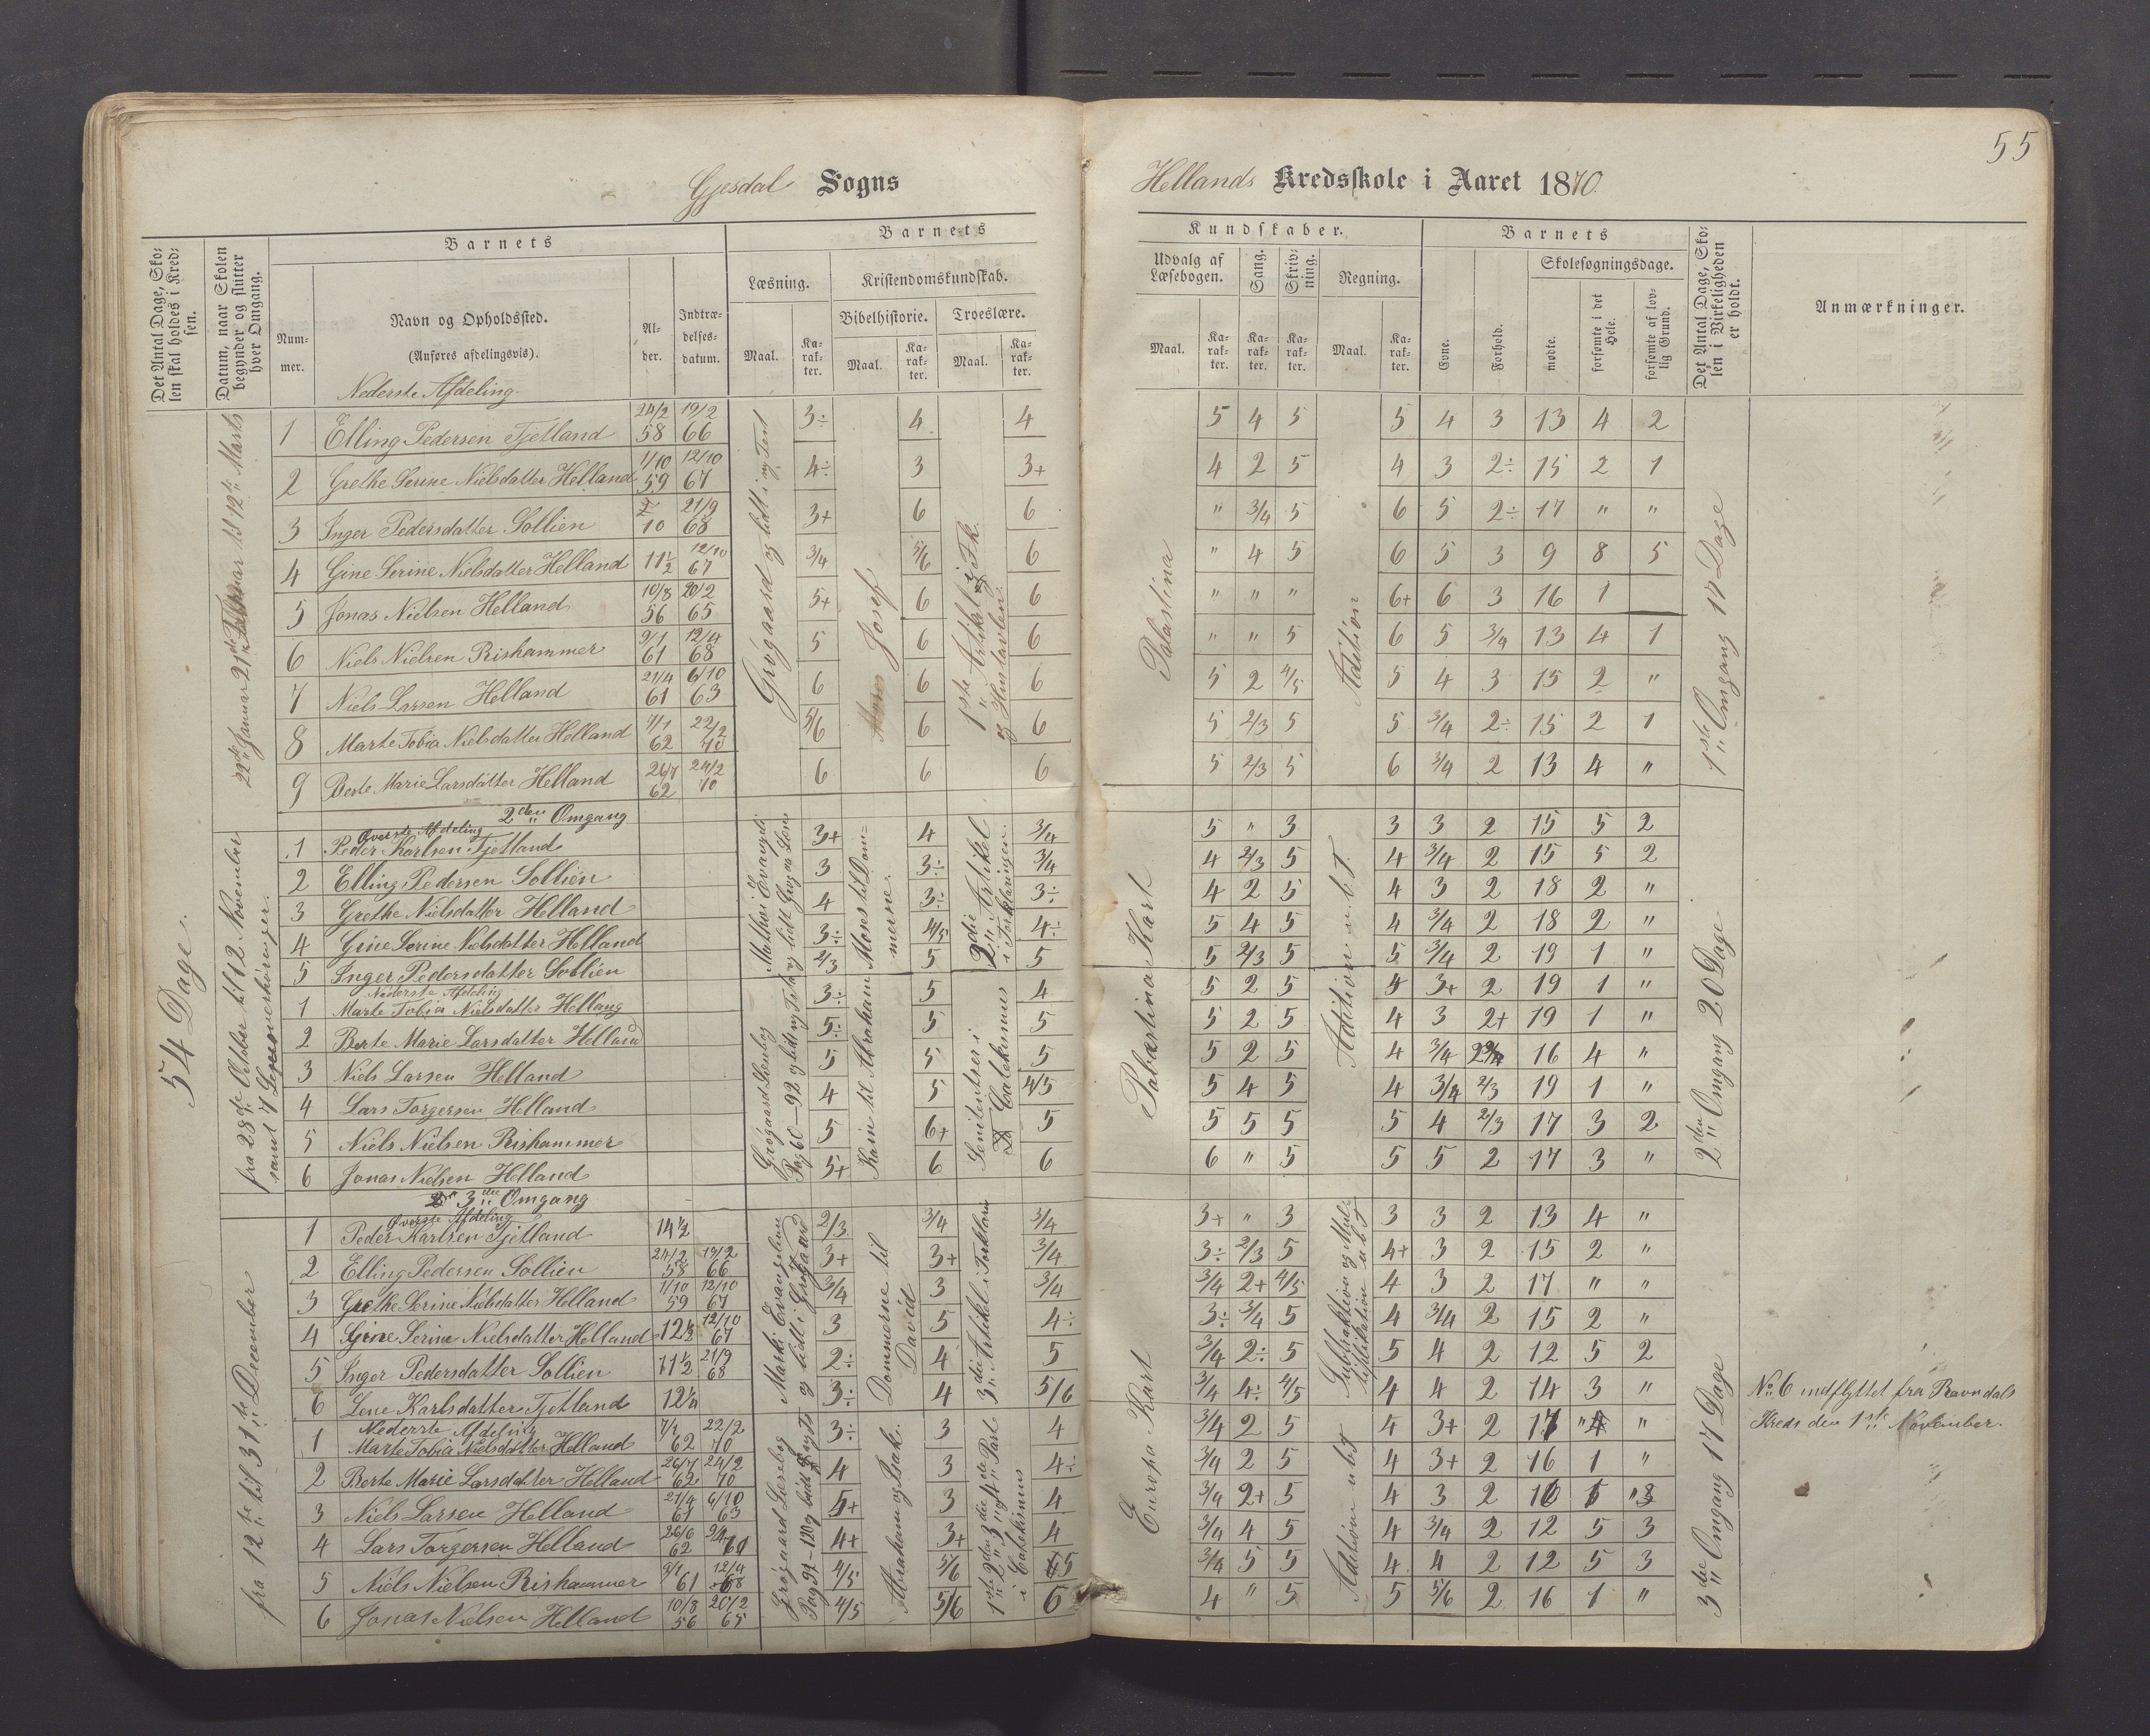 55
Gjesdal Sogns
Hellands Kredsskole i Aaret 1870.
Det Antal Dage, Skolen skal holdes i Kredsen.
Datum, naar Skolen begynder og slutter hver Omgang.
Barnets
Nummer.
Navn og Opholdssted.
(Anføres afdelingsvis).
Alder.
Indtrædelsesdatum.
Barnets
Læsning.
Kristendomskundskab.
Bibelhistorie.
Troeslære.
Maal.
Karakter.
Maal.
Karakter.
Maal.
Karakter.
Kundskaber.
Udvalg af Læsebogen.
Sang.
Skrivning.
Regning.
Maal.
Karakter.
Karakter.
Karakter.
Maal.
Karakter.
Barnets
Evne.
Forhold.
Skolesøgningsdage.
mødte.
forsømte i det Hele.
forsømte af lovlig Grund.
Det Antal Dage, Skolen i Virkeligheden er holdt.
Anmærkninger.
54 Dage.
Nederste Afdeling.
1 Elling Pedersen Tjetland 24/2 58 19/2 66 3÷ 4 4 5 4 5 5 4 3 13 4 2
2 Grethe Serine Nielsdatter Helland 1/10 59 12/10 67 4÷ 3 3+ 4 2 5 4 3 2÷ 15 2 1
3 Inger Pedersdatter Sollien 10 21/9 68 3+ 6 6 " 3/4 5 6 5 2÷ 17 " "
4 Gine Serine Nielsdatter Helland 11 1/2 12/10 67 3/4 5/6 6 " 4 5 6 5 3 9 8 5
5 Jonas Nielsen Helland 10/8 56 20/2 65 5+ 6 6 " " " 6+ 6 3 16 1
6 Niels Nielsen Rishammer 9/1 61 12/4 68 5 6 6 " " 5 6 5 3/4 13 4 1
7 Niels Larsen Helland 21/4 61 6/10 63 6 6 6 5 2 4/5 5 4 3 15 2 "
8 Marte Tobia Nielsdatter Helland 7/1 62 22/2 70 5/6 6 6 5 2/3 5 5 3/4 2÷ 15 2 1
9 Berte Marie Larsdatter Helland 26/7 62 24/2 70 6 6 6 5 2/3 5 6 3/4 2 13 4 "
Josef
Palastina
Adition
1ste Omgang 17 Dage
2den Omgang
fra 28de October til 12 November
samt
Øverste Afdeling
1 Peder Karlsen Tjetland 3+ 4 3/4 5 " 3 3 3 2 15 5 2
2 Elling Pedersen Sollien 3 3÷ 3/4 4 2/3 5 4 3/4 2 15 5 2
3 Grethe Nielsdatter Helland 4 3÷ 3÷ 4 2 5 4 3 2 18 2 "
4 Gine Serine Nielsdatter Helland 3÷ 4/5 4÷ 5 4 5 4 3/4 2 18 2 "
5 Inger Pedersdatter Sollien 2/3 5 5 5 2/3 5 5 3/4 2 19 1 "
Mathæi Evangeli
Moses til Dommerne.
2die Artikel i Forklaringen.
Nederste Afdeling
1 Marte Tobia Nielsdatter Helland 3÷ 5 4 5 2 5 4 3+ 2 19 1 "
2 Berte Marie Larsdatter Helland 5÷ 5 5 5 2 5 4 3 2+ 19 1 "
3 Niels Larsen Helland 5 5 5 5 2 5 4 3/4 16 4 "
4 Lars Torgersen Helland 4 5 4/5 5 4 5 4 3/4 2/3 19 1 "
5 Niels Nielsen Rishammer 5 6+ 5 5 5 5 5 4 2/3 17 3 2
6 Jonas Nielsen Helland 5+ 6 6 6 " 5 5 5 2 17 3 "
Pag 60–92
Kain til Abraham
Catekismus
Kart
Adition u. b. T.
2den Omgang 20 Dage
3die Omgang
fra 12te til 31te December
Øverste Afdeling
1 Peder Karlsen Tjetland 14 1/2 2/3 3/4 3/4 3+ " 3 3 3 2 13 4 "
2 Elling Pedersen Sollien 24/2 58 19/2 66 3+ 3+ 3/4 3÷ 2/3 5 4+ 3 2 15 2 "
3 Grethe Serine Nielsdatter Helland 1/10 59 12/10 67 3/4 3 3/4 3/4 2+ 4/5 4 3 2 17 " "
4 Gine Serine Nielsdatter Helland 12 1/2 12/10 67 3 5 4÷ 3÷ 3/4 5 4 3/4 2 15 2 "
5 Inger Pedersdatter Sollien 11 1/2 21/9 68 2÷ 4 5 3/4 2÷ 5 5 4 2 12 5 2
6 Lene Karlsdatter Tjetland 12 1/4 3÷ 4 5/6 3/4 4÷ 4/5 4 4 2 14 3 "
Marki Evangelium og lidt i Grøgaard
Dommerne til David
3die Artikel i Forklarin
Nederste Afdeling
1 Marte Tobia Nielsdatter Helland 7/1 62 22/2 70 3÷ 3 4 3/4 2 5 4 3+ 2 17 " "
2 Berte Marie Larsdatter Helland 26/7 62 24/2 70 4 3 4÷ 3/4 2 5 4 3+ 2 16 1 "
3 Niels Larsen Helland 21/4 61 6/10 63 5+ 3 4 3/4 2+ 5 4 3 2
4 Lars Torgersen Helland 26/6 62 4+ 3+ 4 3/4 4 5 4 3/4 2 12 5 3
5 Niels Nielsen Rishammer 9/1 61 12/4 68 4/5 5/6 5 3/4 5 5 4 4 2 12 5 3
6 Jonas Nielsen Helland 10/8 56 20/2 65 4/5 5/6 6 4 " 5 5 5/6 2 16 1 "
Grøgaard Læsebog
Pag 92–120
Abraham og Isak.
i Catekismus
Europa Kart
Subtraktion og Multiplikation u b T
Adition u b T
3die Omgang 17 Dage
No 6 indflyttet fra Ravndals
Kreds den 1ste November.